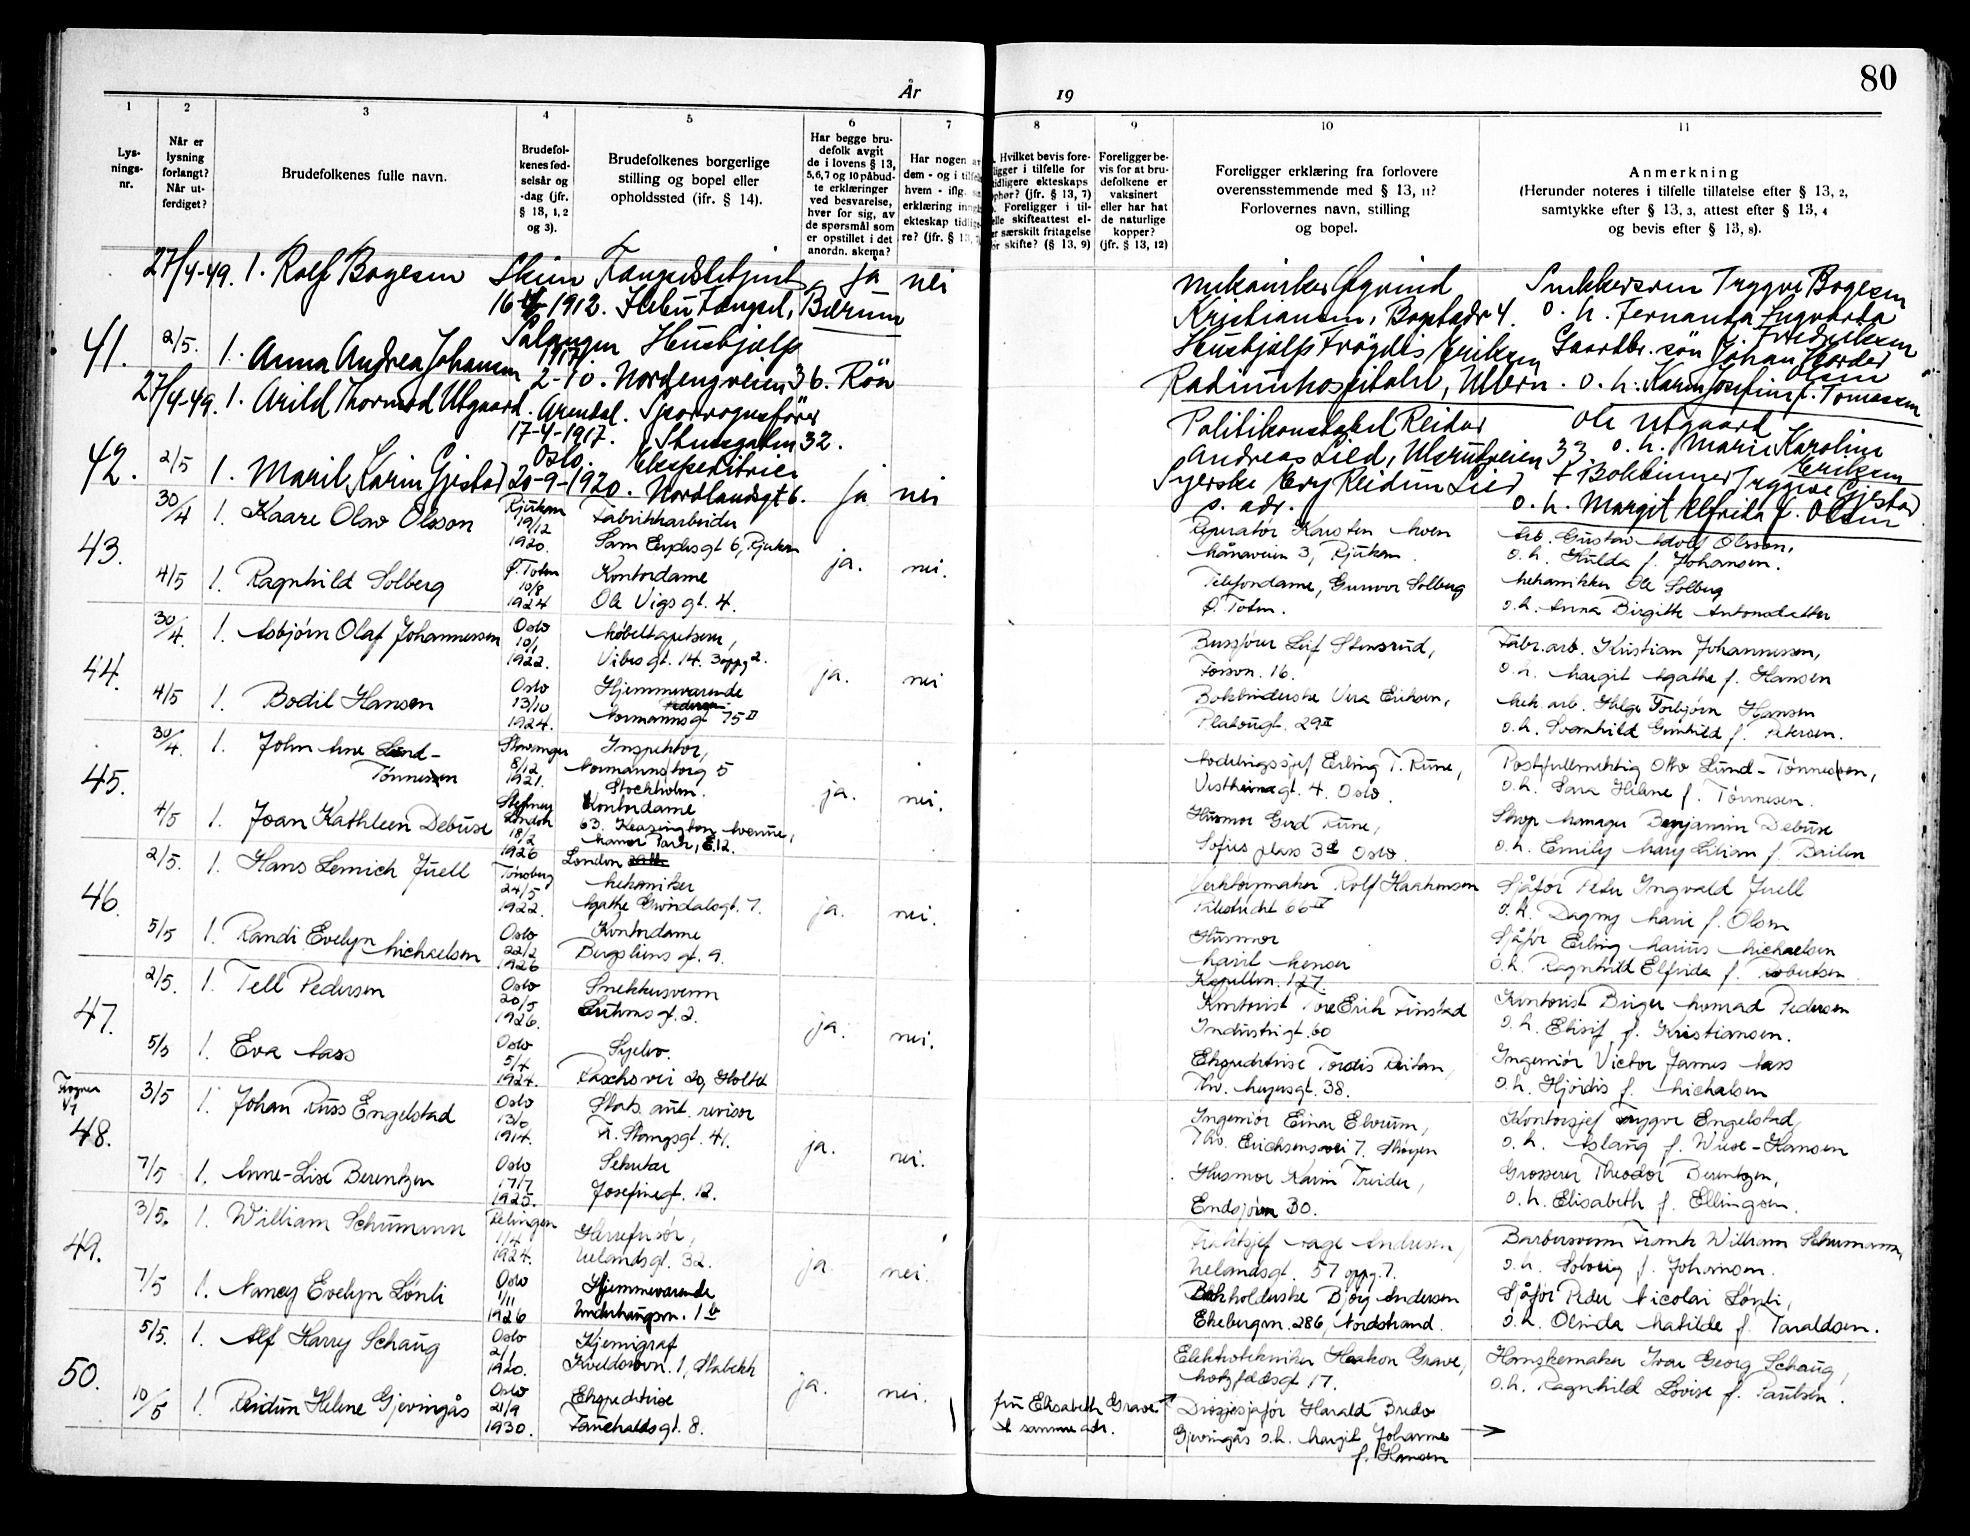 80
År
19
1 2 3 4 5 6 7 8 9 10 11
Lys-
nings-
nr.
Når er
lysning
forlangt?
Når ut-
ferdiget?
Brudefolkenes fulle navn.
Brudefol-
kenes fød-
selsår og
-dag (jfr.
§ 13, 1, 2
og 3).
Brudefolkenes borgerlige
stilling og bopel eller
opholdssted (ifr. § 14).
Har begge bru-
defolk avgit
de i lovens § 13,
5,6,7 og 10 påbud-
te erklæringer
ved besvarelse,
hver for sig, av
de spørsmål som
er opstillet i det
anordn. skema?
Har nogen av
dem - og i tilfe
hvem - iflg. se
erklæring inng
ekteskap tidlig
re? (jfr. § 13, 7
Hvilket bevis fore-
ligger i tilfelle for
tidligere ekteskaps
ophør? (jfr. § 13, 7)
Foreligger i til-
elle skifteattest el-
er særskilt fritagelse
or skifte? (§ 13, 9)
Foreligger be-
vis for at bru-
defolkene er
vaksinert
eller har hat
de naturlige
kopper?
(jfr. § 13, 12)
Foreligger erklæring fra forlovere
overensstemmende med § 13, 11?
Forlovernes navn, stilling
og bopel.
Anmerkning
(Herunder noteres i tilfelle tillatelse efter § 13, 2,
samtykke efter § 13, 3, attest efter § 13, 4
og bevis efter § 13, 8).
41.
27/4-49. 1. Rolf Bogesen
Skien
16-4-1912.
Ila Fengsel, Bærum
ja nei
2/5. 1. Anna Andrea Johansen
Salangen
1917
2-10.
Hushjelp
Nordengveien 36. Røa
Kristiansen, Bogstadv 4.
Hushjelp Frøydis Eriksen
Radiumhospitalet, Ullern.
Snekkersvenn Trygve Bogesen
o. h. Fernanda Ingvarda
f. Fredriksen
Olsen
o. h. Karin Josefine f. Tomassen
42.
27/4-49. 1. Arild Thormod Utgaard.
Arendal.
17-4-1917.
Sporvognsfører
Stensgaten 32.
2/5 1. Maril Karin Gjestad
Oslo.
20-9-1920.
Ekspeditrise
Nordlandsgt 6.
ja nei
Politikonstabel Reidar
Andreas Lied, Ulsrudveien 33
Syerske Evy Reidun Lied
s. adr.
Ole Utgaard
o. h. Marie Karoline
Eriksen
+ Bokbinner Tryggve Gjestad
o. h. Margit Elfrida f. Olsen
43.
30/4 1. Kaare Olav Olsson
Rjukan
19/12
1920.
Fabrikkarbeider
Sam Eydesgt 6, Rjukan
4/5 1. Ragnhild Solberg
Ø. Toten
10/8
1924
Kontordame
Ole Vigs gt. 4.
ja. nei.
Reparatør Karsten Moen
Månaveien 3, Rjukan.
Telefondame, Gunvor Solberg
Ø. Toten.
Arb. Gustav Adolf Olsson,
o. h. Hulda f. Johansen.
Mekanikker Ole Solberg
o.h. Anna Birgitte Antonsdatter
44.
30/4. 1. Asbjørn Olaf Johannessen
Oslo
10/1
1922.
Møbeltapetserer,
Vibes gt. 14. 3 oppg 2.
4/5 1. Bodil Hansen
Oslo
13/10
1924.
Hjemmeværende
Normannsgt 75 II
ja. nei
Bussfører Leif Stensrud,
Fossvn. 16.
Bokbinderske Vera Eriksen,
Platougt. 29 II
Fabr.arb. Kristian Johannessen,
o. h. Margit Agathe f. Hansen
Mek. arb. Helge Torbjørn Hansen
o. h. Svanhild Gunhild f. Petersen.
45.
30/4. 1. John Arne Lund-
Tønnessen
Stavanger
8/12
1921.
Inspektør,
Normannstorg 5
Stockholm.
4/5 1. Joan Kathleen Debuse
Stepney
London
18/2
1926
Kontordame
63. Kensington Avenue,
Manor Park, E.12.
London
ja. nei.
Avdelingssjef Erling T. Rune,
Vestheimgt. 4. Oslo.
Husmor Gerd Rune,
Sofies plass 3 Oslo.
Postfullmektig Otto Lund-Tønnessen,
o.h. Sara Helene f. Tønnesen.
Shop manager Benjamin Debuse
o.h. Emily Mary Lilian f. Bailen
46.
2/5. 1. Hans Lemich Juell
Tønsberg
24/5
1922.
Mekaniker
Agathe Grøndalsgt. 7.
5/5 1. Randi Evelyn Michaelsen
Oslo
22/2
1926
Kontordame
Bergsliens gt. 9.
ja. nei.
Verktøymaker Rolf Haakensen
Pilestredet 66 IV
Husmor
Marit Menser
Kapellvn. 127.
Sjåfør Peter Ingvald Juell
o.h. Dagny Marie f. Olsen
Sjåfør Erling Marius Michaelsen
o.h. Ragnhild Elfrida f. Robertsen.
47.
2/5. 1. Tell Pedersen
Oslo
20/5
1926.
Snekkersvenn
5/5 1. Eva Aass
Oslo
5/4
1924.
Syelev.
Paschsvei 20, Holtet
ja. nei.
Kontorist Tore Erik Finstad
Industrigt. 60
Ekspeditrise Tordis Reitan,
Thv. Meyersgt. 38.
Kontorist Birger Konrad Pedersen
o.h. Elisif f. Kristiansen.
Ingeniør Victor James Aass
o.h. Hjørdis f. Michalsen
Frogner
48.
3/5 1. Johan Russ Engelstad
Oslo
1914.
Stats. aut. revisor
Fr. Stangsgt. 41.
7/5 1. Anne-Lise Berentzen
Oslo
17/7
1925.
Sekretær
Josefinegt. 12.
ja. nei.
Ingeniør Einar Elvrum,
Th. Erichsensvei 7. Skøyen
Husmor Karin Treider,
Endsjøvn 30.
Kontorsjef Trygve Engelstad,
o.h. Aslaug f. Wiese-Hansen
Grosserer Theodor Berentzen,
o.h. Elisabeth f. Ellingsen.
49.
3/5. 1. William Schumann
1/4
1924.
Herrefrisør,
Uelandsgt. 32.
7/5 1. Nancy Evelyn Lønli
Oslo
1/11
1926
Hjemmeværende
Underhaugsvn. 1 b
ja. nei.
Fraktsjef Aage Andresen,
Uelandsgt. 57 oppg. 7.
Bokholderske Bjørg Andersen
Ekebergvn. 286, Nordstrand.
Barbersvenn Frank William Schumann,
o.h. Solveig f. Johansen.
Sjåfør Peder Nicolai Lønli,
o.h. Olinda Matilde f. Taraldsen.
50.
5/5. 1. Alf Harry Schaug
Oslo
2/1
1920.
Kjemigraf
Kveldsrovn. 1, Stabekk
10/5 1. Reidun Helene Gjevingås
Oslo
21/9
1930.
Ekspeditrise
Fauchaldsgt. 8.
ja. nei.
fru Elisabeth Grave
samme adr.
Elektrotekniker Haakon Grave,
Motzfeldtsgt 17.
Drosjesjåfør Harald Bredo
Gjevingås o.h. Margit Johanne
f. Hansen
Hanskemaker Ivar Georg Schaug,
o.h. Ragnhild Lovise f. Paulsen.